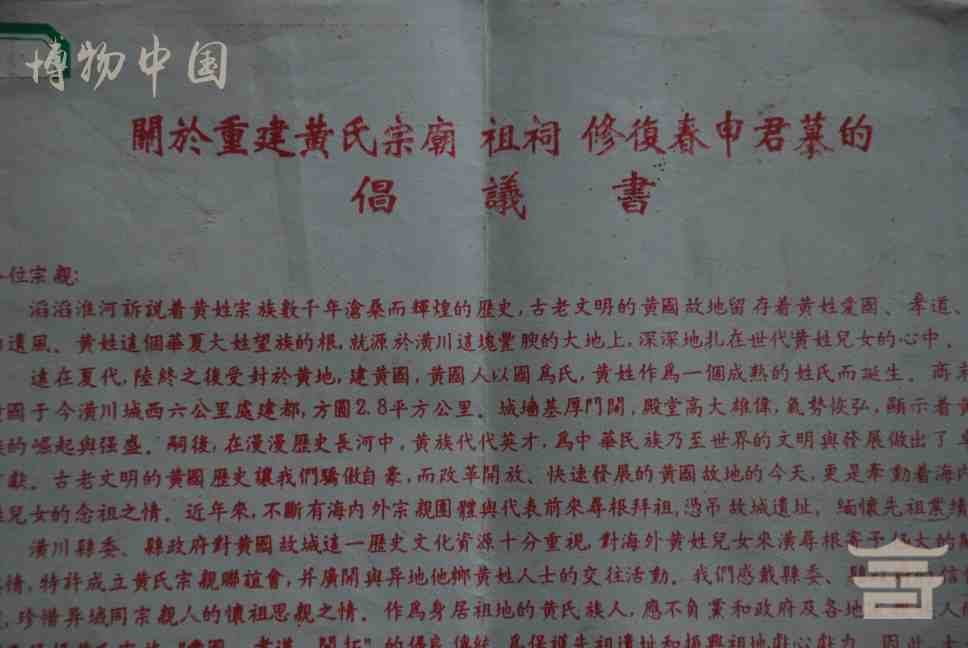 博物中国
關於重建黄氏宗廟 祖祠 修復春申君墓的
倡議書
位宗親:
滔滔淮河訴説着黄姓宗族數千年滄桑而輝煌的歷史,古老文明的黄國故地留存着黄姓愛國、孝道、
遺風。黄姓這個華夏大姓望族的根,就源於潢川這塊豐腴的大地上,深深地扎在世代黄姓兒女的心中。
遠在夏代,陸終之後受封於黄地,建黄國,黄國人以國爲氏,黄姓作爲一個成熟的姓氏而誕生。商末
國于今潢川城西六公里處建都,方圓2.8平方公里。城墻基厚門闊,殿堂高大雄偉,氣勢恢弘,顯示着黄
的崛起與强盛。嗣後,在漫漫歷史長河中,黄族代代英才,爲中華民族乃至世界的文明與發展做出了卓
獻。古老文明的黄國歷史讓我們驕傲自豪,而改革開放、快速發展的黄國故地的今天,更是牽動着海内
兒女的念祖之情。近年來,不斷有海内外宗親團體與代表前來尋根拜祖,憑吊故城遺址,緬懷先祖業績
潢川縣委、縣政府對黄國故城這一歷史文化資源十分重視,對海外黄姓兒女來潢尋根寄予極大的
情,特許成立黄氏宗親聯誼會,并廣開與异地他鄉黄姓人士的交往活動。我們感戴縣委、縣
珍惜异域同宗親人的懷祖思親之情。作爲身居祖地的黄氏族人,應不負黨和政府及各地
的優良傳統,爲保護先祖遺址和振興祖地獻心獻力。因此,